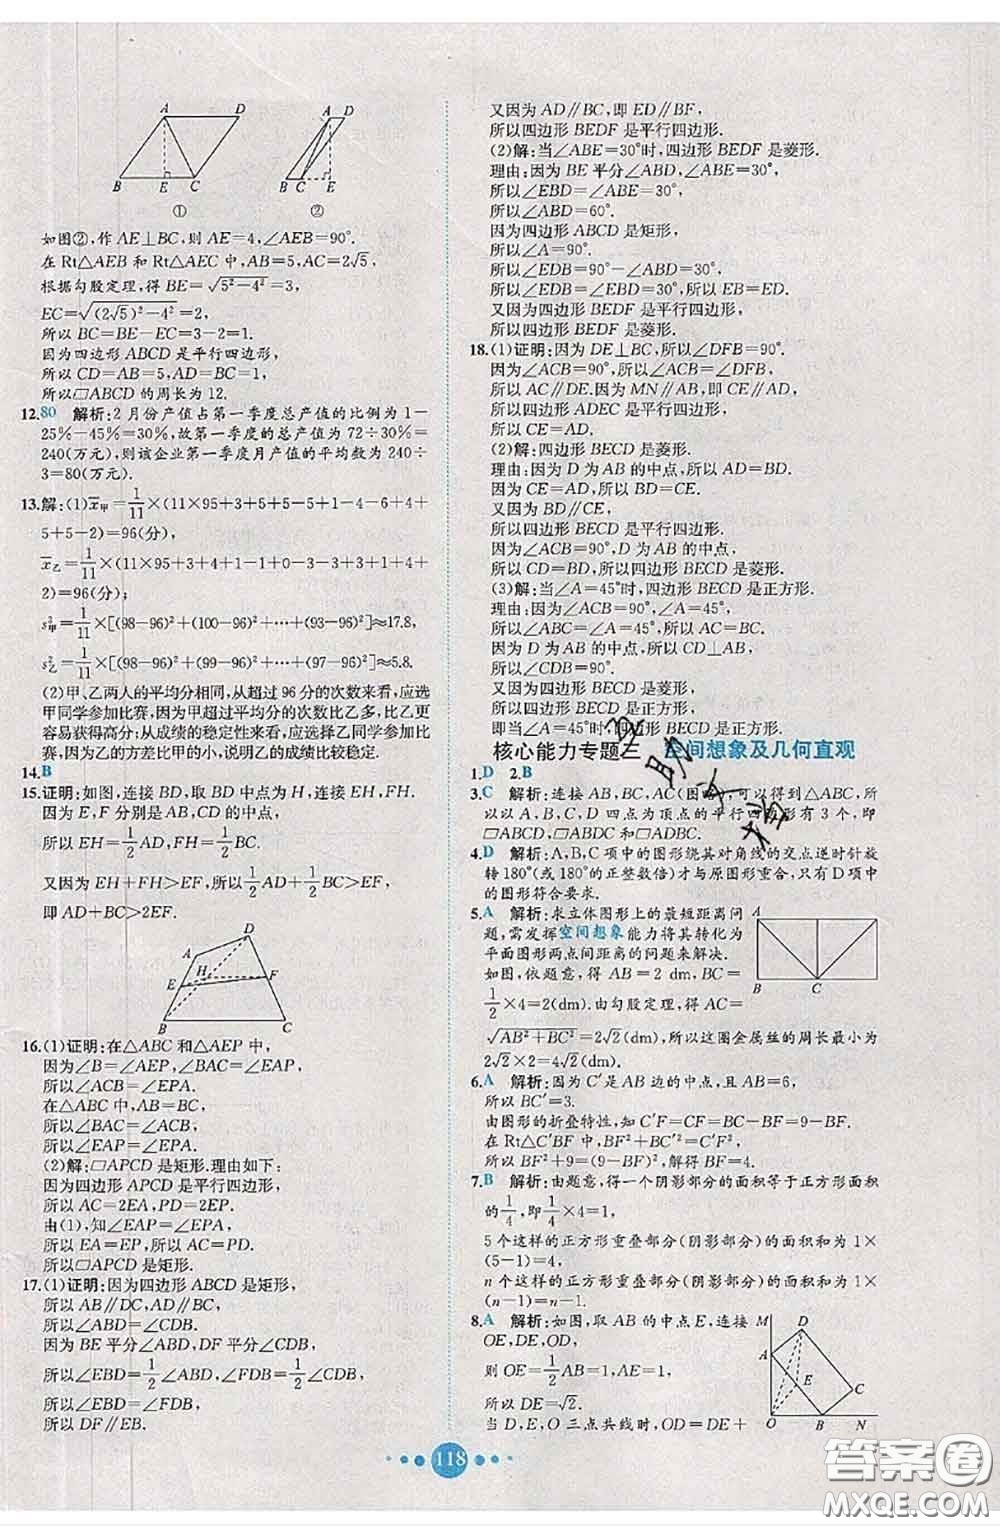 A D A D
B E C B C E
① ②
如图②,作 AE⊥BC,则 AE=4,∠AEB=90°.
在 Rt△AEB 和 Rt△AEC 中,AB=5,AC=2√5,
根据勾股定理,得 BE=√(5²−4²)=3,
EC=√((2√5)²−4²)=2,
所以 BC=BE−EC=3−2=1.
因为四边形 ABCD 是平行四边形,
所以 CD=AB=5,AD=BC=1.
所以□ABCD 的周长为 12.
12.80 解析:2 月份产值占第一季度总产值的比例为 1−
25%−45%=30%,故第一季度的总产值为 72÷30%=
240(万元),则该企业第一季度月产值的平均数为 240÷
3=80(万元).
13.解:(1)x̄甲=1/11×(11×95+3+5+5−5+1−4−3+4+
5+5−2)=96(分),
x̄乙=1/11×(11×95+3+4+1−1+0−3+3+1+4−
2)=96(分);
s²甲=1/11×[(98−96)²+(100−96)²+…+(93−96)²]≈17.8,
s²乙=1/11×[(98−96)²+(99−96)²+…+(97−96)²]≈5.8.
(2)甲、乙两人的平均分相同,从超过 96 分的次数来看,应选
甲同学参加比赛,因为甲超过平均分的次数比乙多,比乙更
容易获得高分;从成绩的稳定性来看,应选择乙同学参加
比赛,因为乙的方差比甲的小,说明乙的成绩比较稳定.
14.B
15.证明:如图,连接 BD,取 BD 中点为 H,连接 EH,FH.
因为 E,F 分别是 AB,CD 的中点,
所以 EH=1/2AD,FH=1/2BC.
又因为 EH+FH>EF,所以1/2AD+1/2BC>EF,
即 AD+BC>2EF.
D
A H F
E
B C
16.(1)证明:在△ABC 和△AEP 中,
因为∠B=∠AEP,∠BAC=∠EAP,
所以∠ACB=∠EPA.
在△ABC 中,AB=BC,
所以∠BAC=∠ACB,
所以∠EAP=∠EPA.
(2)解:□APCD 是矩形.理由如下:
因为四边形 APCD 是平行四边形,
所以 AC=2EA,PD=2EP.
由(1),知∠EAP=∠EPA,
所以 EA=EP,所以 AC=PD.
所以□APCD 是矩形.
17.(1)证明:因为四边形 ABCD 是矩形,
所以 AB∥DC,AD∥BC,
所以∠ABD=∠CDB.
因为 BE 平分∠ABD,DF 平分∠CDB,
所以∠EBD=1/2∠ABD,∠FDB=1/2∠CDB,
所以∠EBD=∠FDB,
所以 DF∥EB.
又因为 AD∥BC,即 ED∥BF,
所以四边形 BEDF 是平行四边形.
(2)解:当∠ABE=30°时,四边形 BEDF 是菱形.
理由:因为 BE 平分∠ABD,∠ABE=30°,
所以∠EBD=∠ABE=30°,
所以∠ABD=60°.
因为四边形 ABCD 是矩形,
所以∠A=90°.
所以∠EDB=90°−∠ABD=30°.
所以∠EBD=∠EDB=30°,所以 EB=ED.
又因为四边形 BEDF 是平行四边形,
所以四边形 BEDF 是菱形.
18.(1)证明:因为 DE⊥BC,所以∠DFB=90°.
因为∠ACB=90°,所以∠ACB=∠DFB,
所以 AC∥DE.因为 MN∥AB,即 CE∥AD,
所以四边形 ADEC 是平行四边形,
所以 CE=AD.
(2)解:四边形 BECD 是菱形.
理由:因为 D 为 AB 的中点,所以 AD=BD.
因为 CE=AD,所以 BD=CE.
又因为 BD∥CE,
所以四边形 BECD 是平行四边形.
因为∠ACB=90°,D 为 AB 的中点,
所以 CD=BD,所以四边形 BECD 是菱形.
(3)解:当∠A=45°时,四边形 BECD 是正方形.
理由:因为∠ACB=90°,∠A=45°,
所以∠ABC=∠A=45°,所以 AC=BC.
因为 D 为 AB 的中点,所以 CD⊥AB,
所以∠CDB=90°.
又因为四边形 BECD 是菱形,
所以四边形 BECD 是正方形,
即当∠A=45°时,四边形 BECD 是正方形.
核心能力专题三 空间想象及几何直观
1.D 2.B
3.C 解析:连接 AB,BC,AC(图略),可以得到△ABC,所
以以 A,B,C,D 四点为顶点的平行四边形有 3 个,即
□ABCD,□ABDC 和□ADBC.
4.D 解析:A,B,C 项中的图形绕其对角线的交点逆时针旋
转 180°(或 180°的正整数倍)才与原图形重合,只有 D 项中
的图形符合要求.
5.A 解析:求立体图形上的最短距离问
题,需发挥空间想象能力将其转化为
平面图形两点间距离的问题来解决.
如图,依题意,得 AB=2 dm,BC=
1/2×4=2(dm).由勾股定理,得 AC=
√(AB²+BC²)=2√2(dm),所以这圈金属丝的周长最小为
2√2×2=4√2(dm).
A
B C
6.A 解析:因为 C′是 AB 边的中点,且 AB=6,
所以 BC′=3.
由图形的折叠特性,知 C′F=CF=BC−BF=9−BF.
在 Rt△C′BF 中,BF²+BC′²=C′F²,
所以 BF²+9=(9−BF)²,解得 BF=4.
7.B 解析:由题意,得一个阴影部分的面积等于正方形面积
的1/4,即1/4×4=1,
5 个这样的正方形重叠部分(阴影部分)的面积和为 1×
(5−1)=4,
n 个这样的正方形重叠部分(阴影部分)的面积和为 1×
(n−1)=n−1.
8.A 解析:如图,取 AB 的中点 E,连接
OE,DE,OD,
则 OE=1/2AB=1,
所以 DE=√2.
当 D,E,O 三点共线时,OD=DE+
M D
A
E C
O B N
118
答案圈
MXQE.COM